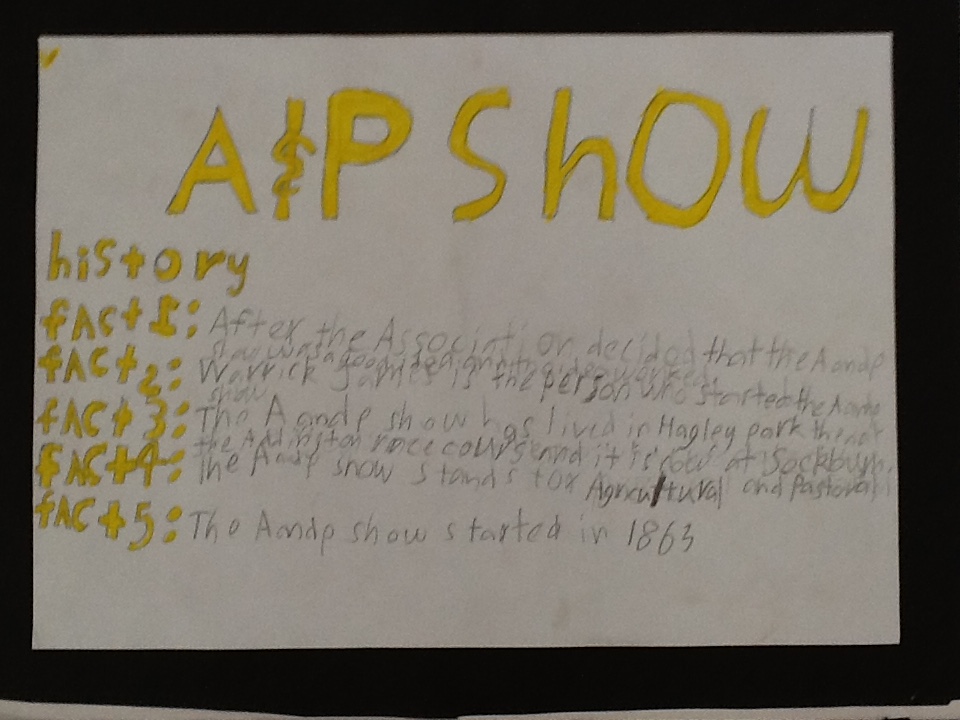 A & P ShOW
hiStory
fACt 1: After the Association decided that the A and p
show was a good idea and the idea worked.
fACt 2: Warrick James is the person who started the A and p
show
fACt 3: The A and p show has lived in Hagley park then at
the Addington racecourse and it is now at Sockburn.
fACt 4: the A and p show stands for Agricultural and Pastoral
fACt 5: The A and p show started in 1863